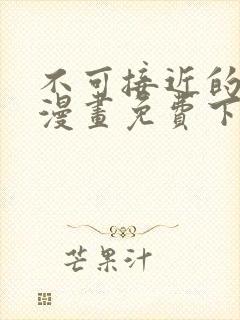 不可接近的
漫畫免費下
芒果汁